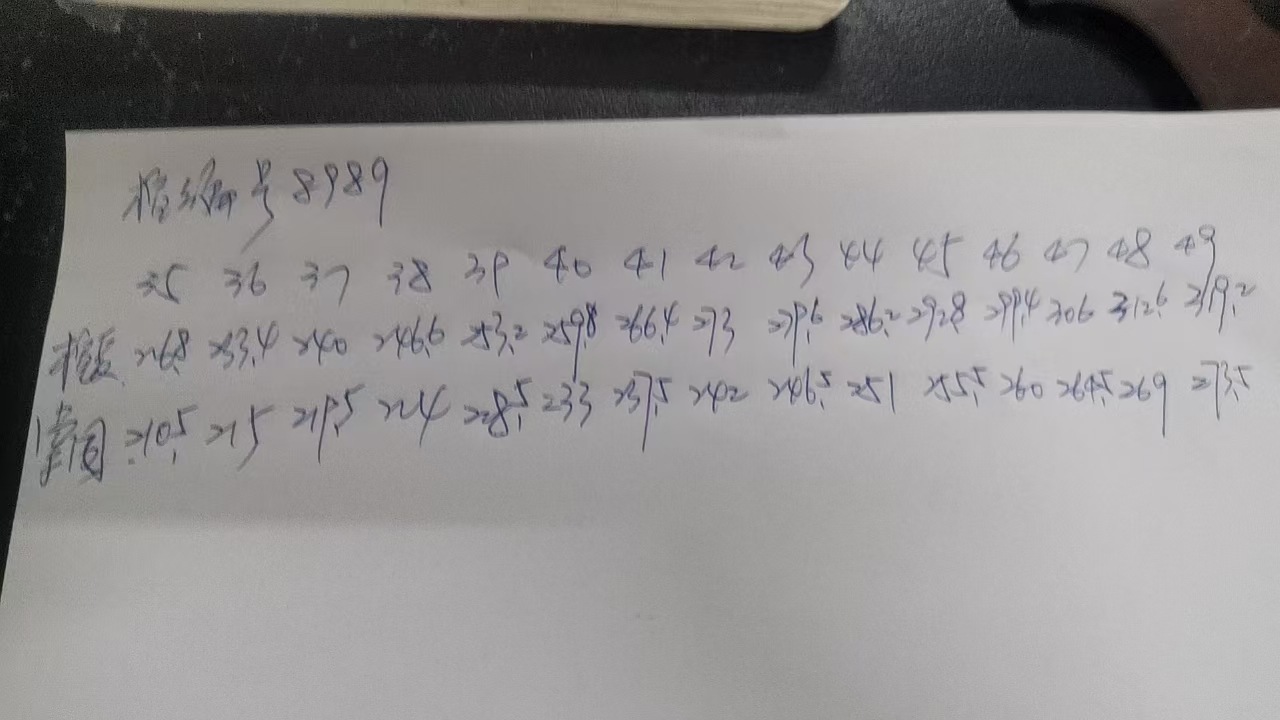 楦编号8989
35 36 37 38 39 40 41 42 43 44 45 46 47 48 49
楦长 226.8 233.4 240 246.6 253.2 259.8 266.4 273 279.6 286.2 292.8 299.4 306 312.6 319.2
掌围 210.5 215 219.5 224 228.5 233 237.5 242 246.5 251 255.5 260 264.5 269 273.5